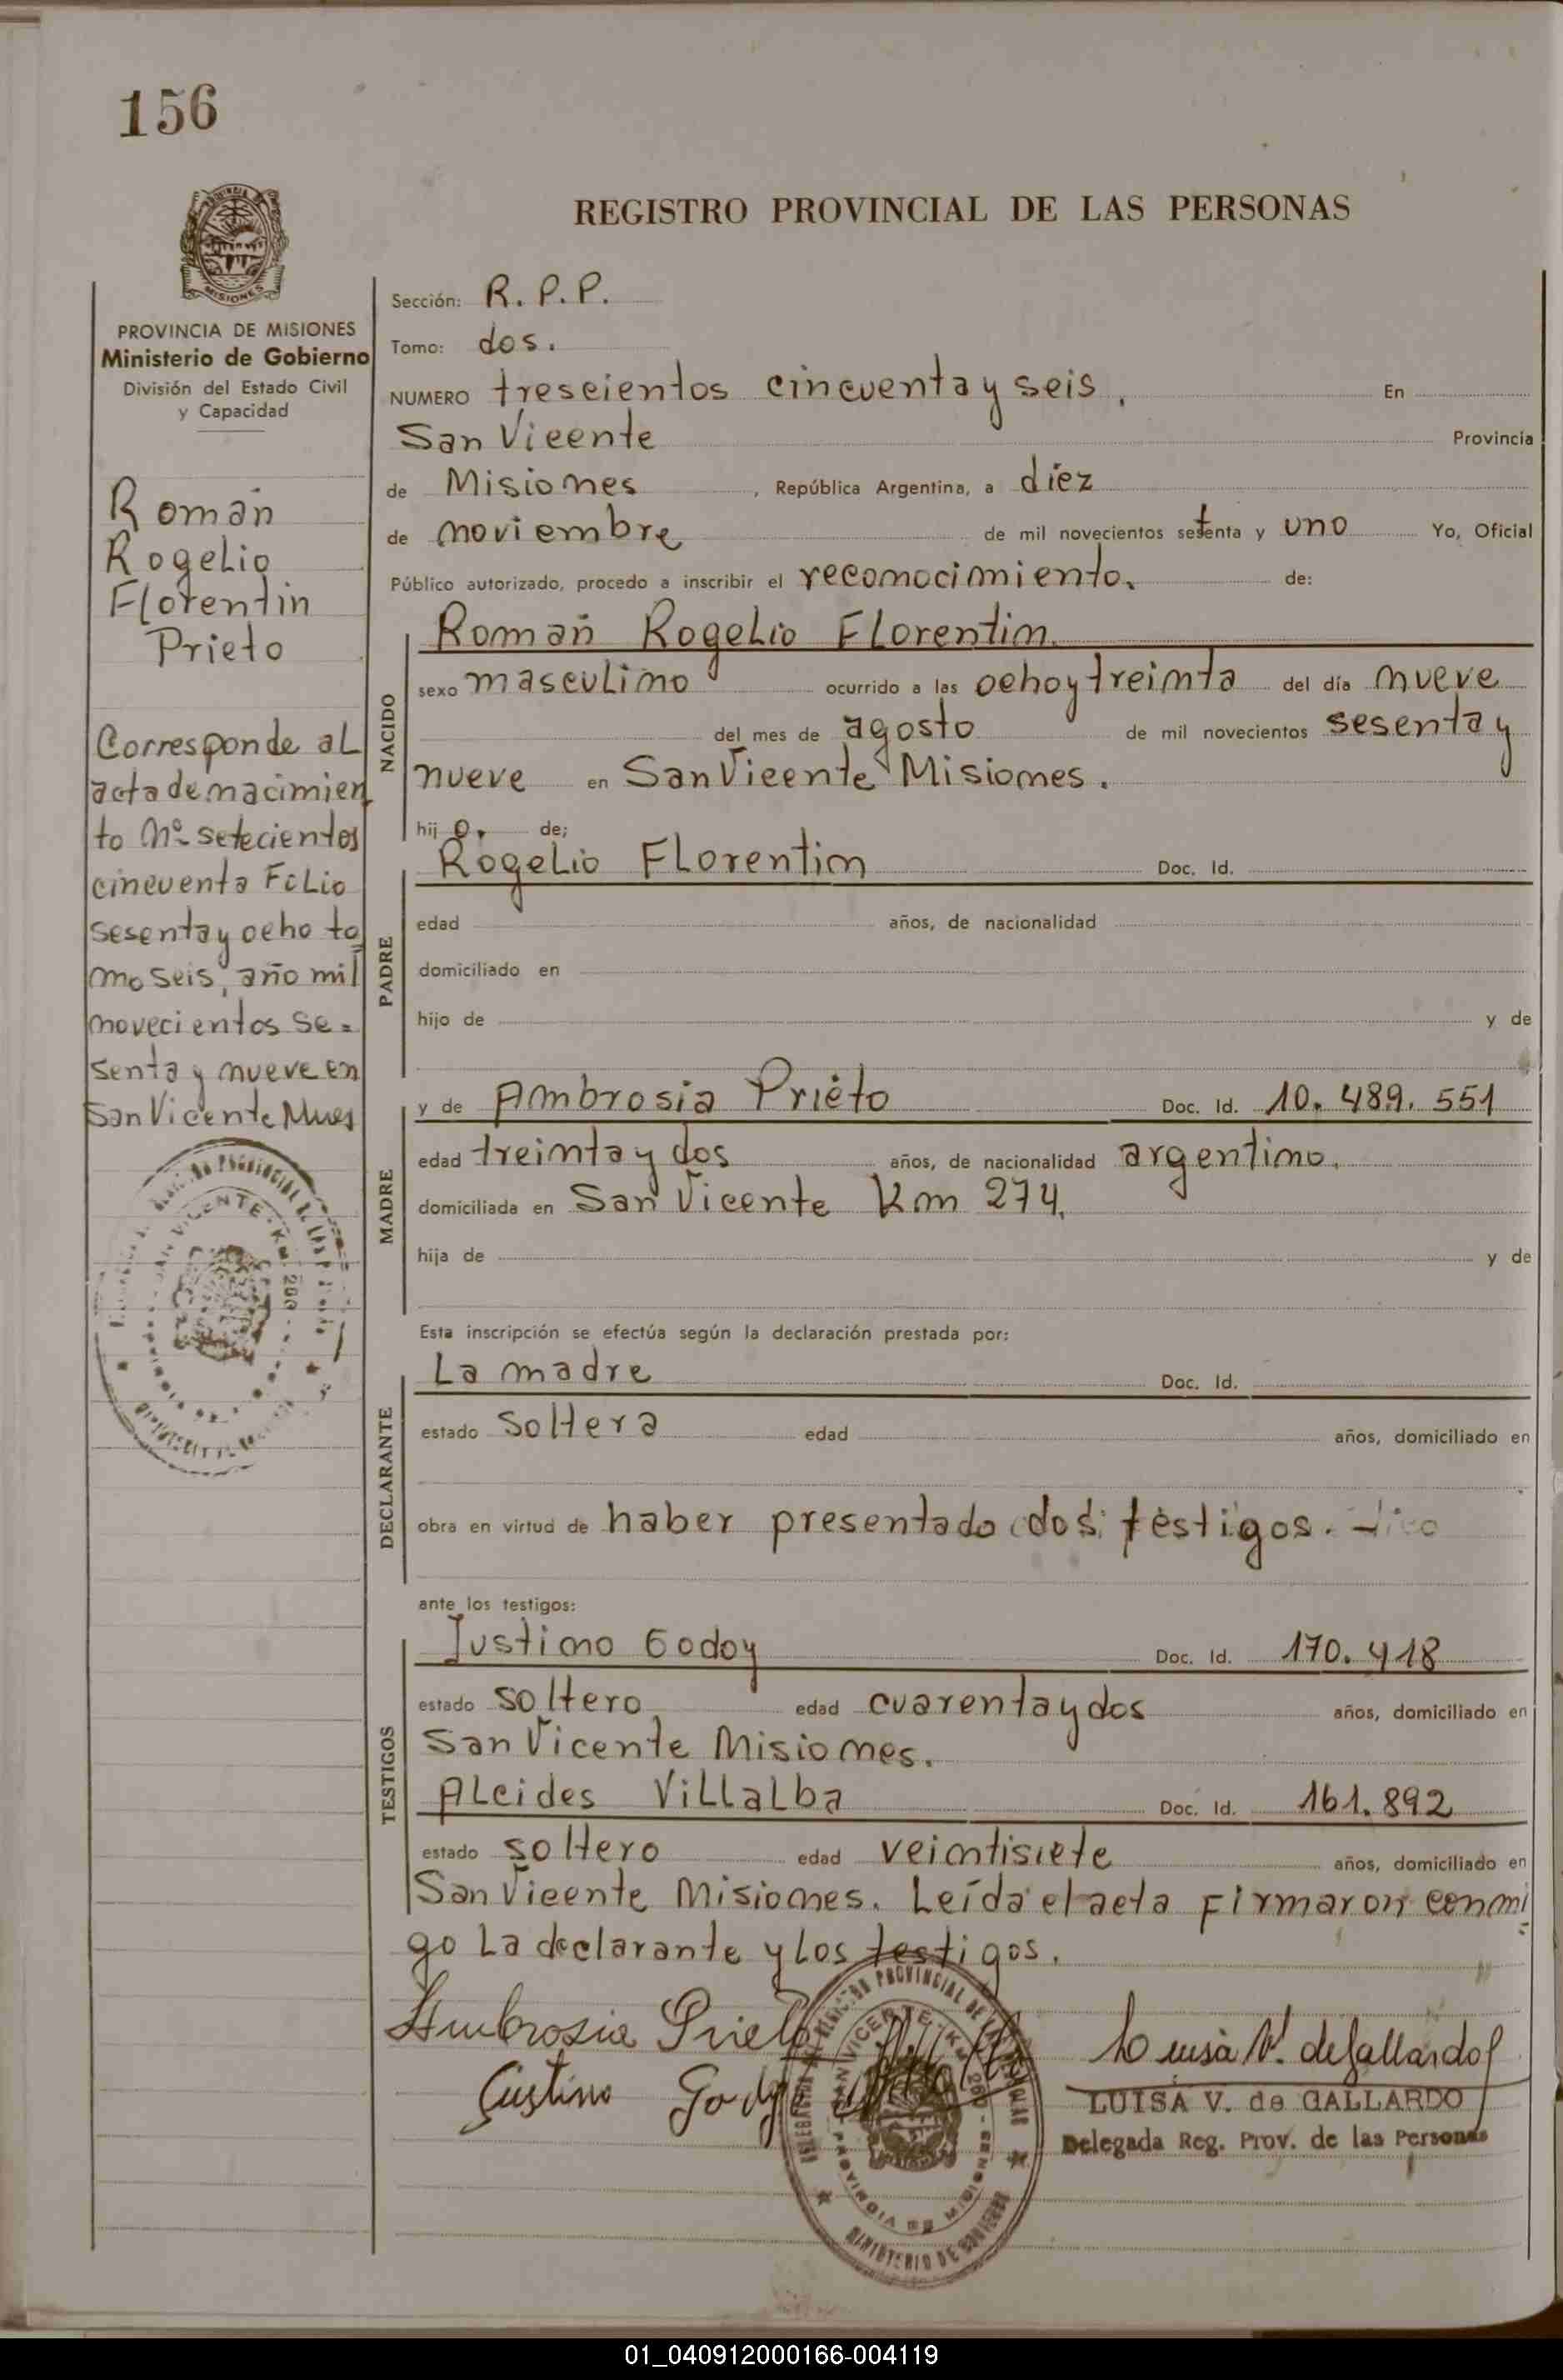 156
REGISTRO PROVINCIAL DE LAS PERSONAS
MISIONES
PROVINCIA DE MISIONES
Ministerio de Gobierno
División del Estado Civil
y Capacidad
Román
Rogelio
Florentin
Prieto
Corresponde al
acta de nacimien
to Nº setecientos
cincuenta Folio
sesenta y ocho to
mo seis, año mil
novecientos se=
senta y nueve en
San Vicente Mnes
Sección: R. P. P.
Tomo: dos.
NUMERO trescientos cincuenta y seis. En
San Vicente Provincia
de Misiones, República Argentina, a diez
de noviembre de mil novecientos setenta y uno Yo, Oficial
Público autorizado, procedo a inscribir el reconocimiento. de:
NACIDO
Román Rogelio Florentin
sexo masculino ocurrido a las ocho y treinta del día nueve
del mes de agosto de mil novecientos sesenta y
nueve en San Vicente Misiones.
hij o. de;
PADRE
Rogelio Florentin Doc. Id.
edad años, de nacionalidad
domiciliado en
hijo de y de
MADRE
y de Ambrosia Prieto Doc. Id. 10. 489. 551
edad treinta y dos años, de nacionalidad argentino.
domiciliada en San Vicente Km 274.
hija de y de
Esta inscripción se efectúa según la declaración prestada por:
DECLARANTE
La madre Doc. Id.
estado soltera edad años, domiciliado en
obra en virtud de haber presentado dos testigos.
ante los testigos:
TESTIGOS
Justino Godoy Doc. Id. 170. 418
estado soltero edad cuarenta y dos años, domiciliado en
San Vicente Misiones.
Alcides Villalba Doc. Id. 161. 892
estado soltero edad veintisiete años, domiciliado en
San Vicente Misiones. Leída el acta firmaron conmi
go la declarante y los testigos.
Ambrosia Prieto
Justino Godoy
Luisa V. de Gallardo
LUISA V. de GALLARDO
Delegada Reg. Prov. de las Personas
01_040912000166-004119